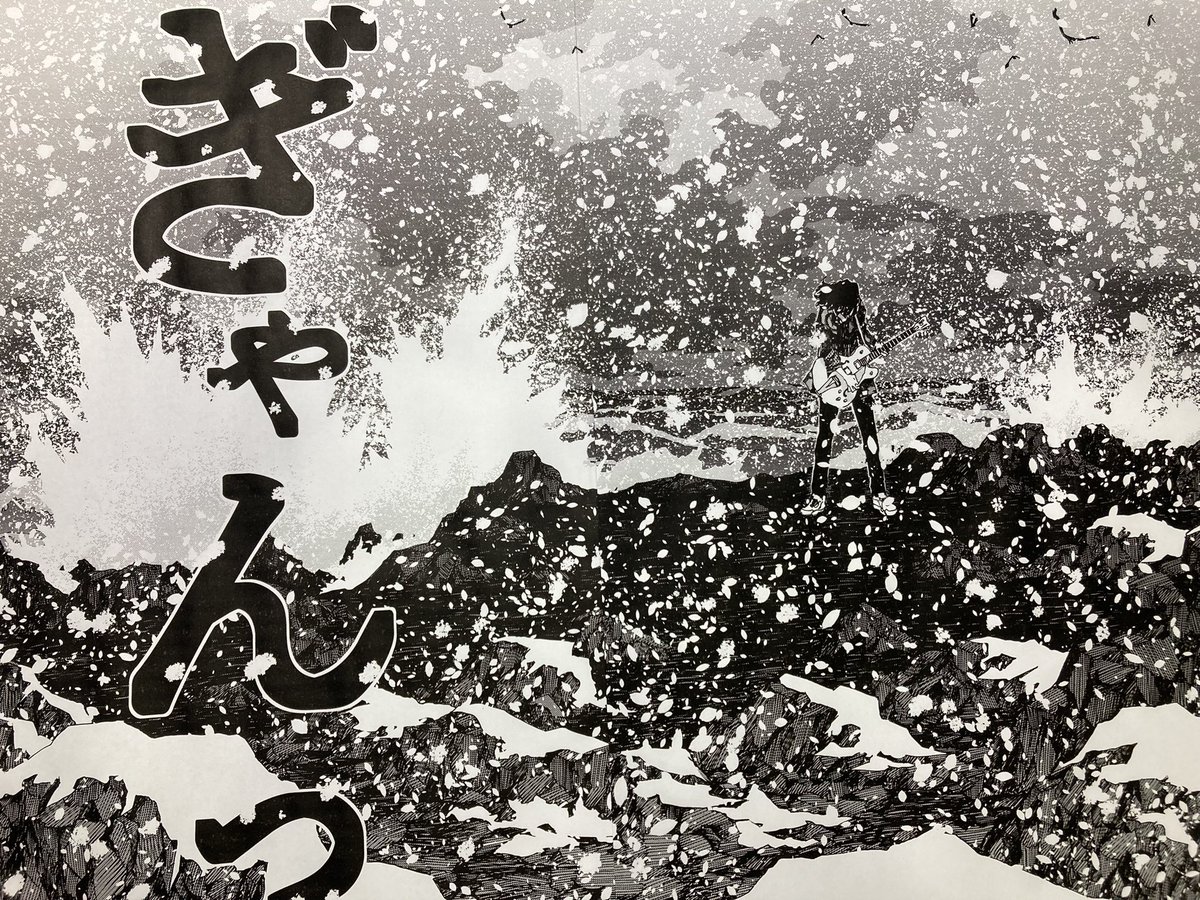 ぎゃんっ